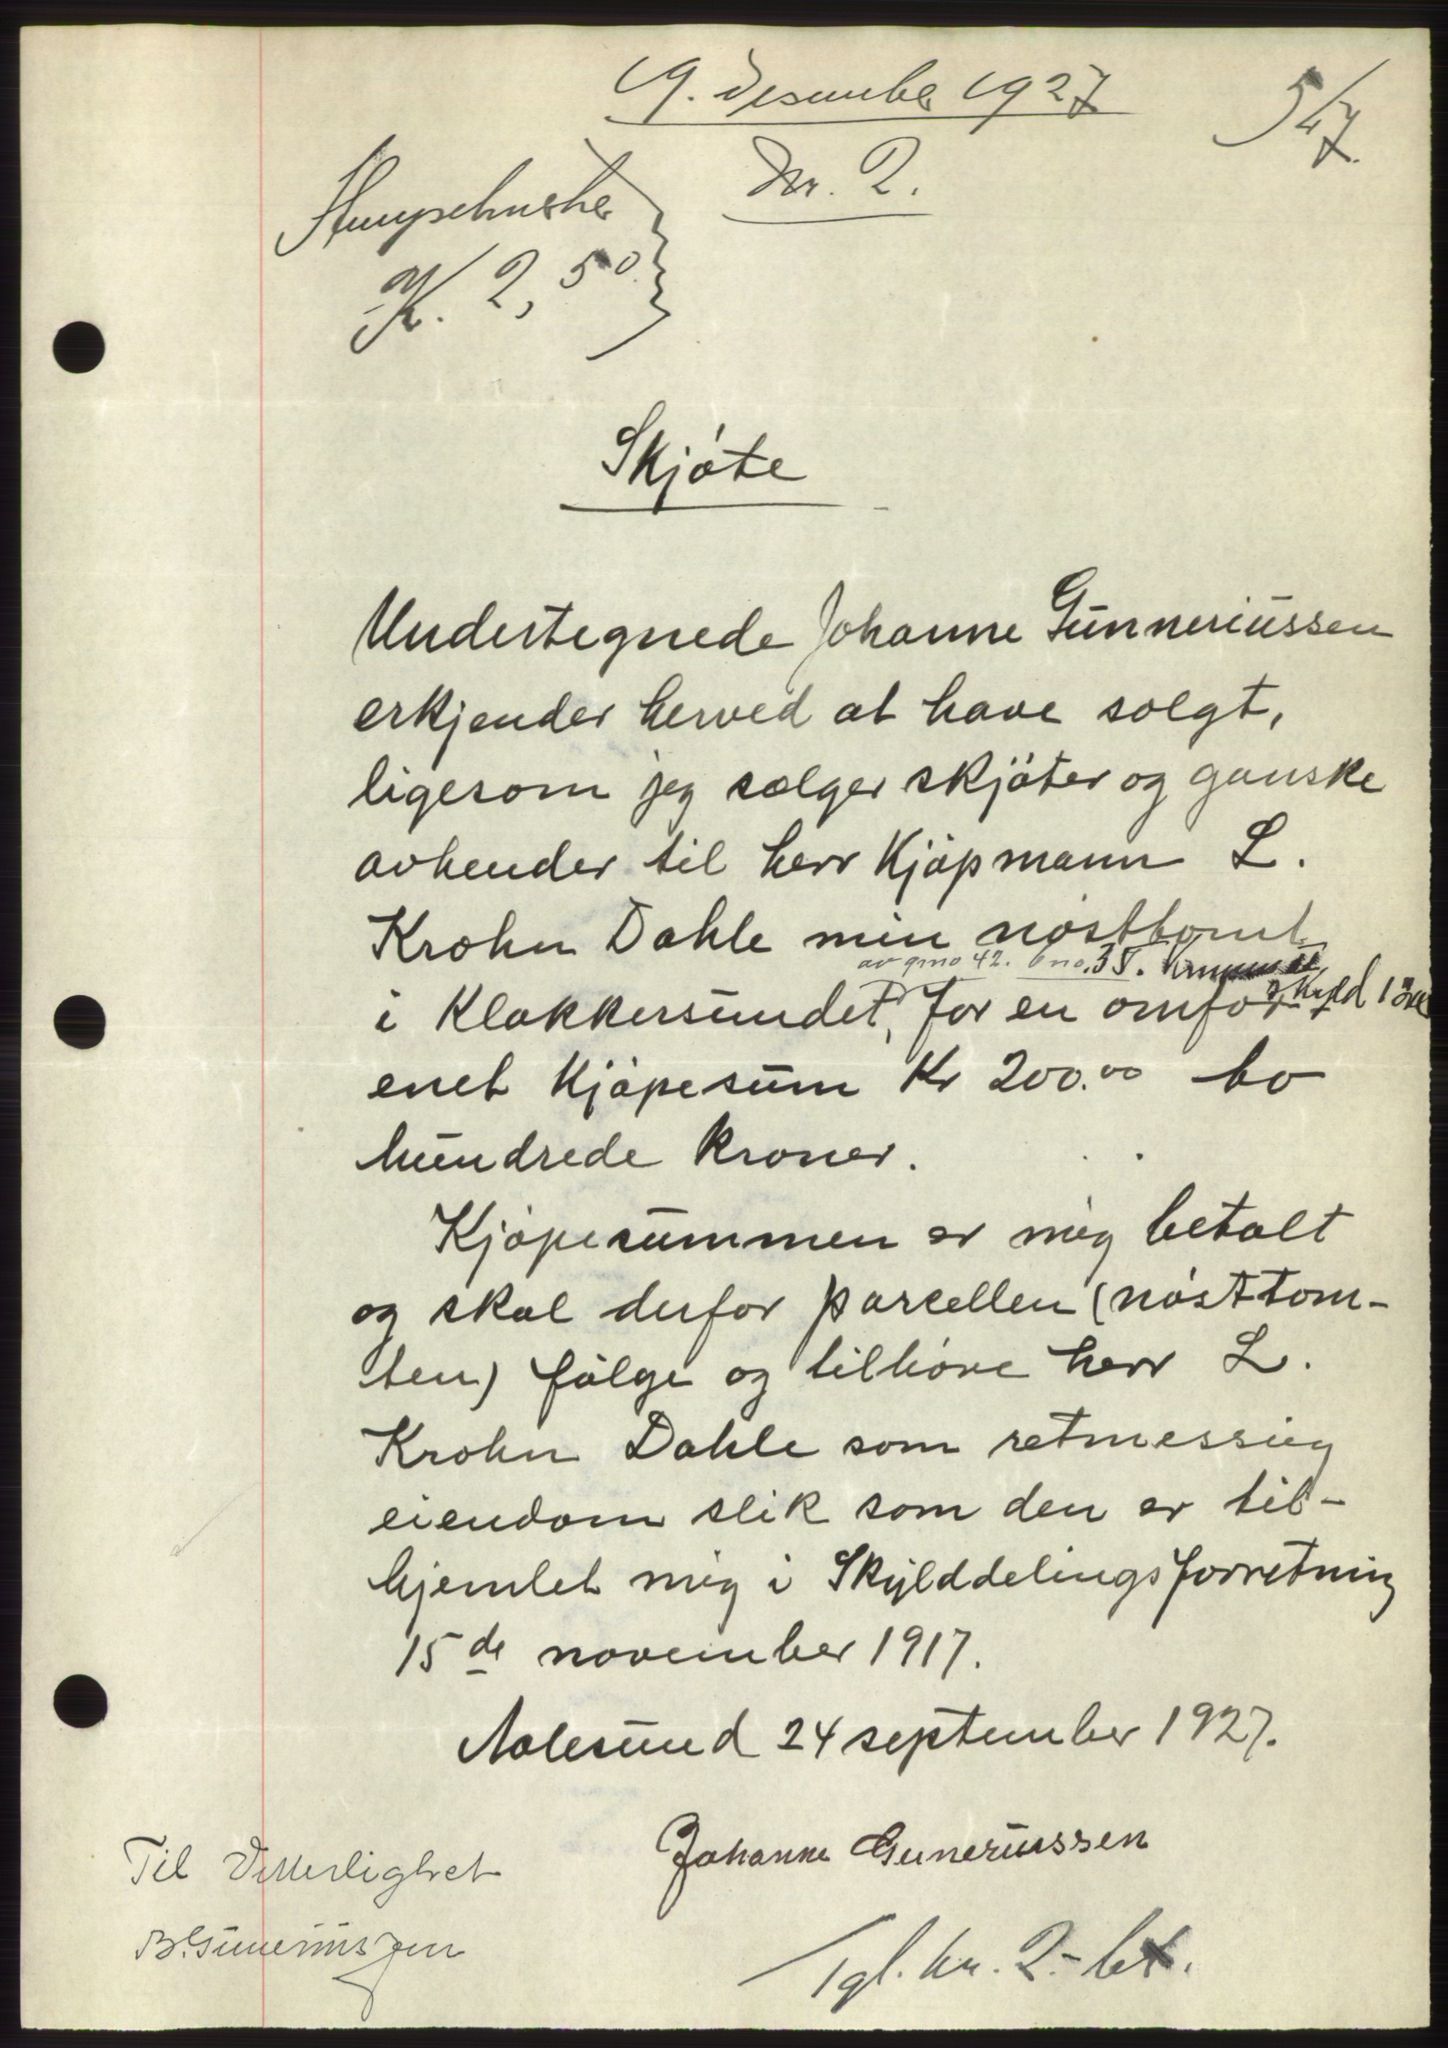 9. Desember 1927
547.
Nr. 2.
K. 2,50
Skjøte
Undertegnede Johanne Gunneriussen
erkjender herved at have solgt,
ligesom jeg sælger skjøter og ganske
avhender til herr Kjøpmann L.
Krohn Dahle min nøsttomt
av gno 42. bno. 35.
i Klokkersundet, for en omfor-
skyld 1 øre
enet Kjøpesum Kr 200.00 to
hundrede kroner.
Kjøpesummen er mig betalt
og skal derfor parcellen (nøsttom-
ten) følge og tilhøre herr L.
Krohn Dahle som retmessig
eiendom slik som den er til-
hjemlet mig i Skylddelingsforretning
15de november 1917.
Aalesund 24 september 1927.
Johanne Guneriussen
Til Vitterlighet
B. Guneriussen
Tgl. kr. 2.- bet.